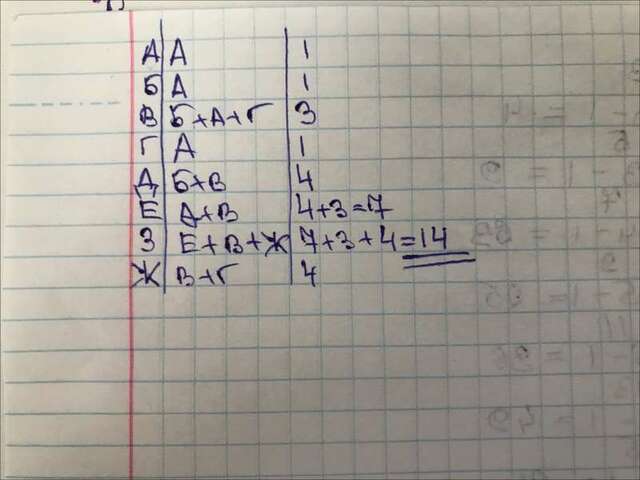 А А 1
Б А 1
В Б+А+Г 3
Г А 1
Д Б+В 4
Е Д+В 4+3=7
З Е+В+Ж 7+3+4=14
Ж В+Г 4